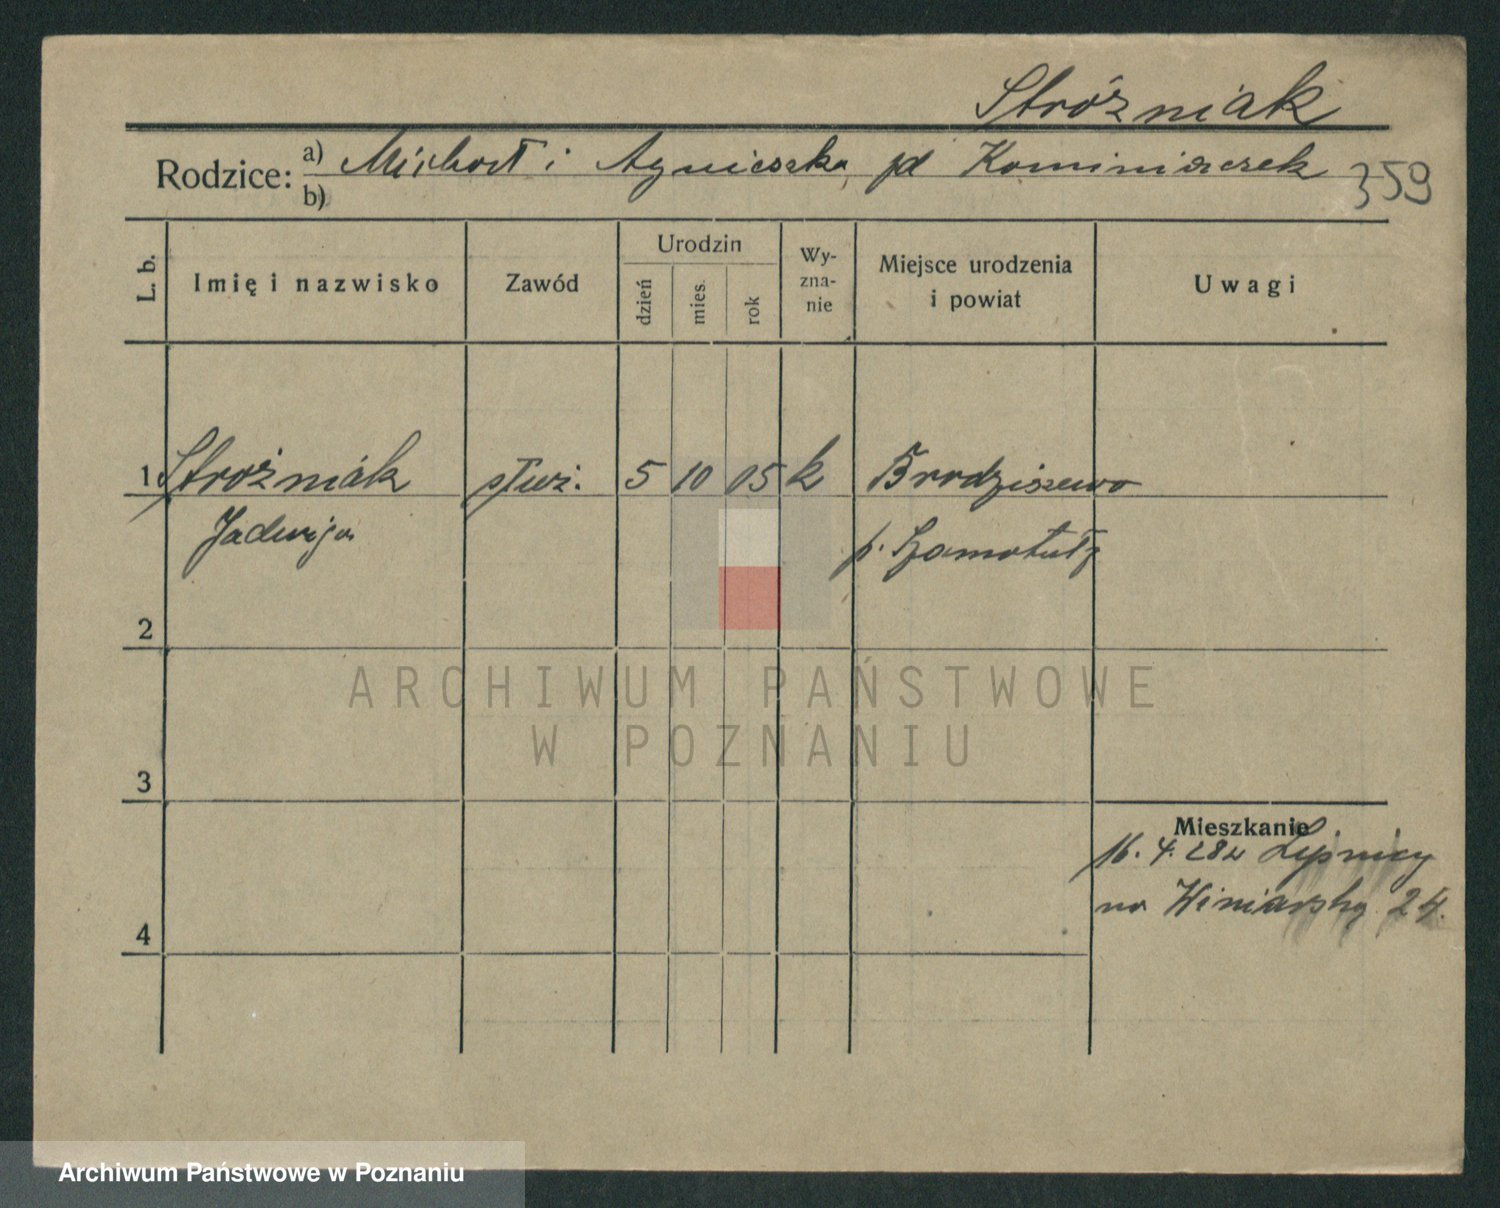 Stróżniak
Rodzice: a) Michał i Agnieszka pd Kominiarczek 359
b)
L. b. Imię i nazwisko Zawód Urodzin dzień mies. rok Wyznanie Miejsce urodzenia i powiat Uwagi
1 Stróżniak służ. 5 10 05 k Brodziszewo
Jadwiga p. Szamotuły
2
3
Mieszkanie
16. 4. 28 z Lipnicy
4
na Winiarską 24.
ARCHIWUM PAŃSTWOWE
W POZNANIU
Archiwum Państwowe w Poznaniu